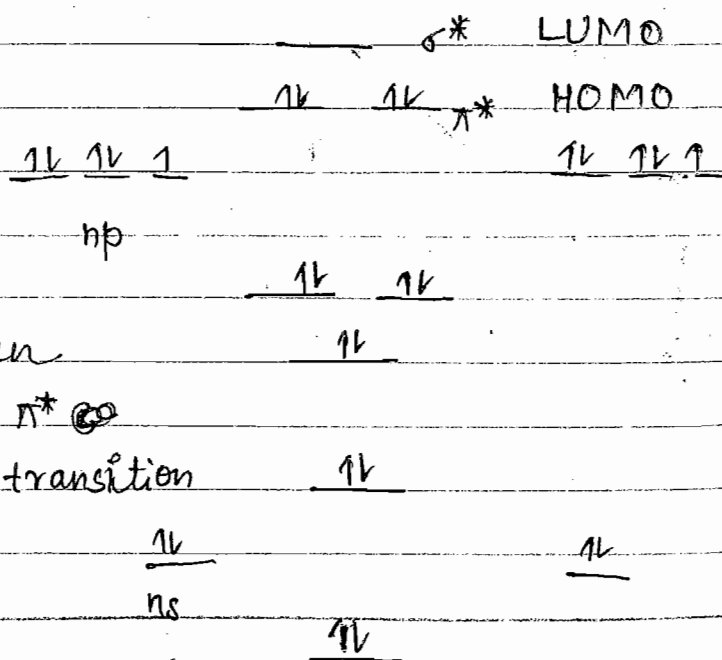 σ* LUMO
↿⇂ ↿⇂ π* HOMO
↿⇂ ↿⇂ ↿ ↿⇂ ↿⇂ ↿
np
↿⇂ ↿⇂
↿⇂
π*
transition ↿⇂
↿⇂ ↿⇂
ns
↿⇂